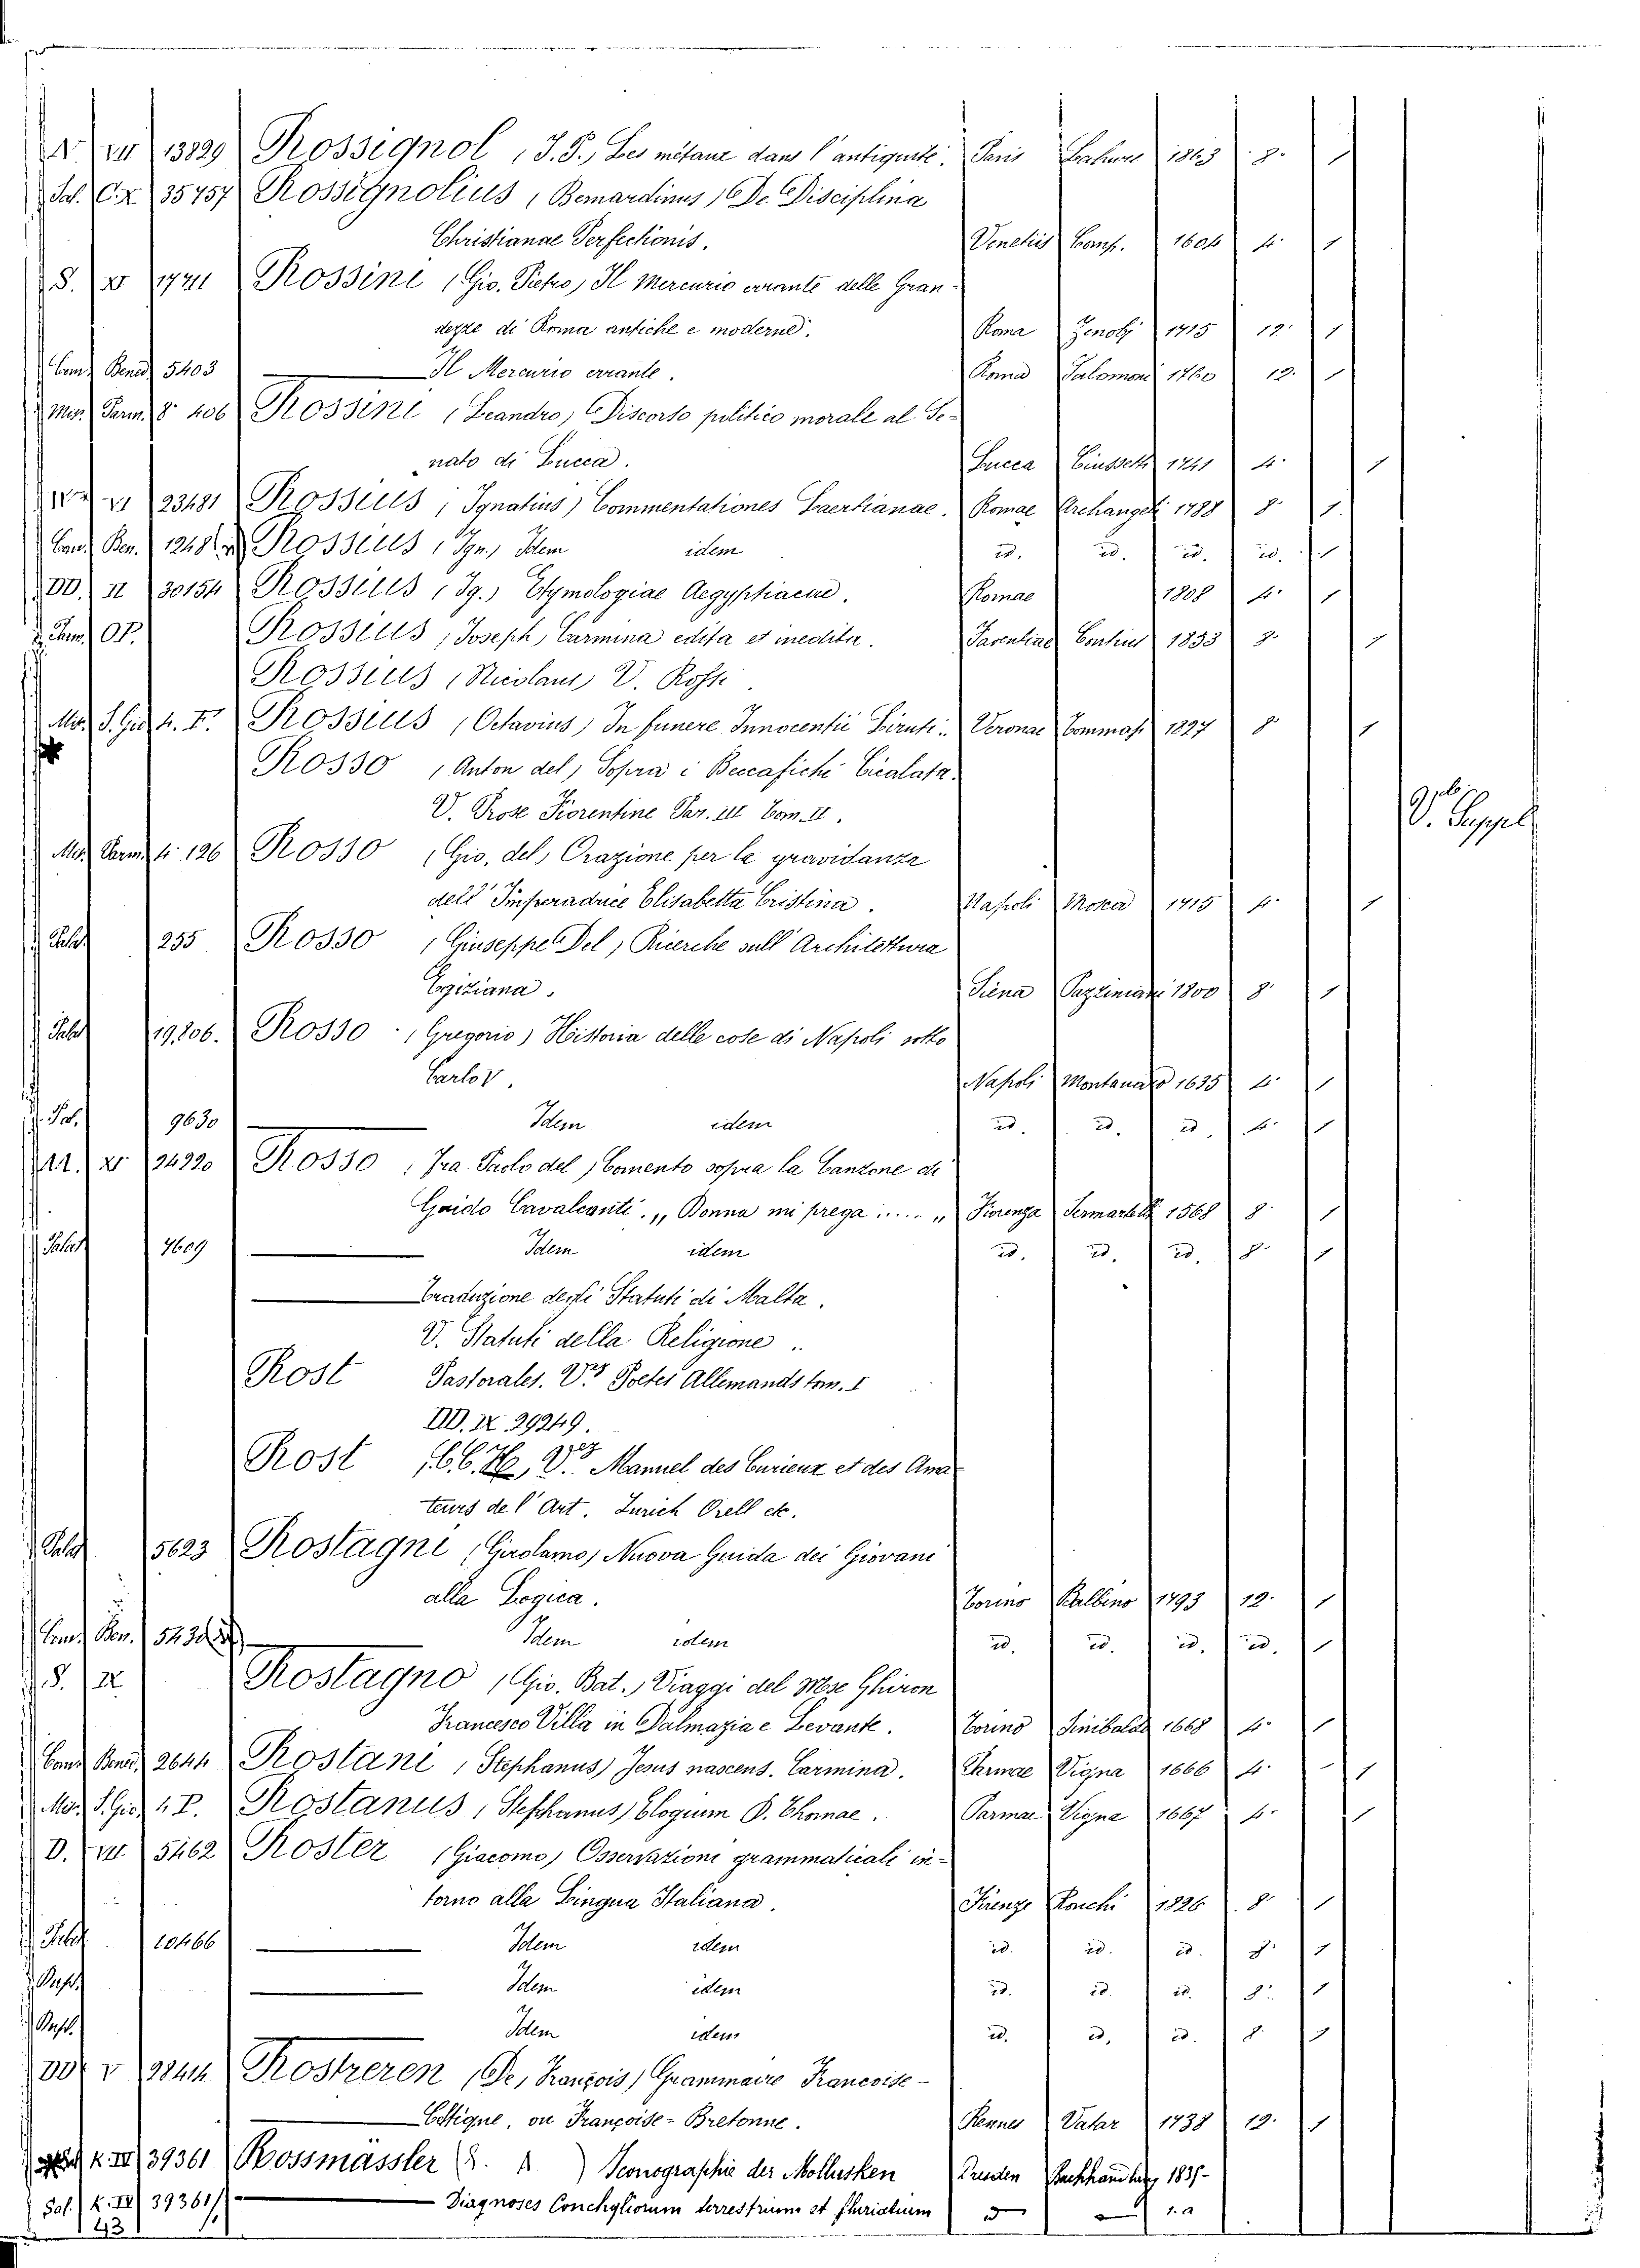 VII 13829 Rossignol (J. P.) Les métaux dans l'antiquité. Paris 1863 8. 1
Sal. C. X 35757 Rossignolius (Bernardinus) De Disciplina
Christianae Perfectionis. Venetiis 1604 4. 1
S. XI 1771 Rossini (Gio. Pietro) Il Mercurio errante delle Gran-
dezze di Roma antiche e moderne. Roma Zenobj 1715 12. 1
Bened. 5403 Il Mercurio errante. Roma Salomoni 1760 12. 1
Parm. 8. 406 Rossini (Leandro) Discorso politico morale al Se-
nato di Lucca. Lucca 1741 4. 1
VI 23481 Rossius (Ignatius) Commentationes Laertianae. Romae Archangeli 1788 8. 1.
Ben. 1248 Rossius (Ign.) Idem idem id. id. id. id. 1
DD. II 30154 Rossius (Ig.) Etymologiae Aegyptiacae. Romae 1808 4. 1
Rossius (Joseph) Carmina edita et inedita. 1853 8. 1
Rossius (Nicolaus) V. Rossi.
S. Gio. 4. I. Rossius (Octavius) In funere Innocentii Liruti. Veronae Tommasi 1827 8 1
Rosso (Anton del) Sopra i Beccafichi Cicalata.
V. Prose Fiorentine Par. III Tom. II.
V. Suppl.
Parm. 4. 126 Rosso (Gio. del) Orazione per la gravidanza
dell' Imperadrice Elisabetta Cristina. Napoli Mosca 1715 4. 1
255 Rosso (Giuseppe Del) Ricerche sull' Architettura
Egiziana. Siena Pazziniani 1800 8. 1
19,806. Rosso (Gregorio) Historia delle cose di Napoli sotto
Carlo V. Napoli Montanaro 1635 4. 1
9630 Idem idem id. id. id. 4. 1
Rosso (Fra Paolo del) Comento sopra la Canzone di
Guido Cavalcanti „ Donna mi prega ..... „ Firenze Sermartelli 1568 8. 1
Palat 7609 Idem idem id. id. id. 8. 1
Traduzione degli Statuti di Malta.
V. Statuti della Religione ..
Rost Pastorales. V.z Poetes Allemands tom. I
DD. IX. 29249.
Rost (C. C. H.) V.ez Manuel des Curieux et des Ama-
teurs de l'Art. Zurich Orell etc.
Palat 5623 Rostagni (Girolamo) Nuova Guida dei Giovani
alla Logica. Torino Balbino 1793 12. 1
Ben. Idem idem id. id. id. id. 1
S. IX Rostagno (Gio. Bat.) Viaggi del Mse Ghiron
Francesco Villa in Dalmazia e Levante. Torino Sinibaldo 1668 4. 1
Bened. 2644 Rostani (Stephanus) Jesus nascens. Carmina. Parmae Vigna 1666 4. 1
S. Gio. 4. P. Rostanus (Stephanus) Elogium D. Thomae. Parmae Vigna 1667 4. 1
D. VII. 5462 Roster (Giacomo) Osservazioni grammaticali in-
torno alla Lingua Italiana. Firenze Ronchi 1826 8 1
10466 Idem idem id. id. id. 8. 1
Idem idem id. id. id. 8. 1
Idem idem id. id. id. 8. 1
DD. V Rostreren (De, François) Grammaire Francoise-
Celtique, ou Françoise-Bretonne. Rennes Vatar 1738 12. 1
K. IV 39361 Rossmässler (E. A. ) Iconographie der Mollusken Dresden 1835-
Sal. K. IV 39361/1 Diagnoses Conchyliorum terrestrium et fluviatium id s. a
43